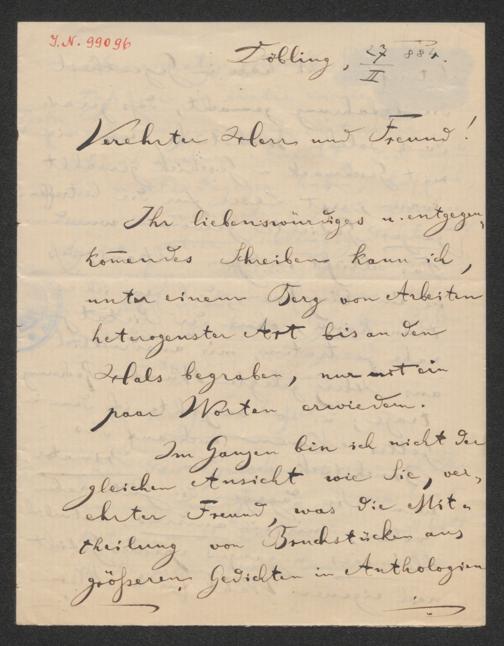 J. N. 99096
Döbling, 27/II 884.
Verehrter Herr und Freund!
Ihr liebenswürdiges u. entgegen-
kom̅endes Schreiben kann ich,
unter einem Berg von Arbeiten
heterogenster Art bis an den
Hals begraben, nur mit ein
paar Worten erwiedern.
Im Ganzen bin ich nicht der
gleichen Ansicht wie Sie, ver-
ehrter Freund, was die Mit-
theilung von Bruchstücken aus
größeren Gedichten in Anthologien